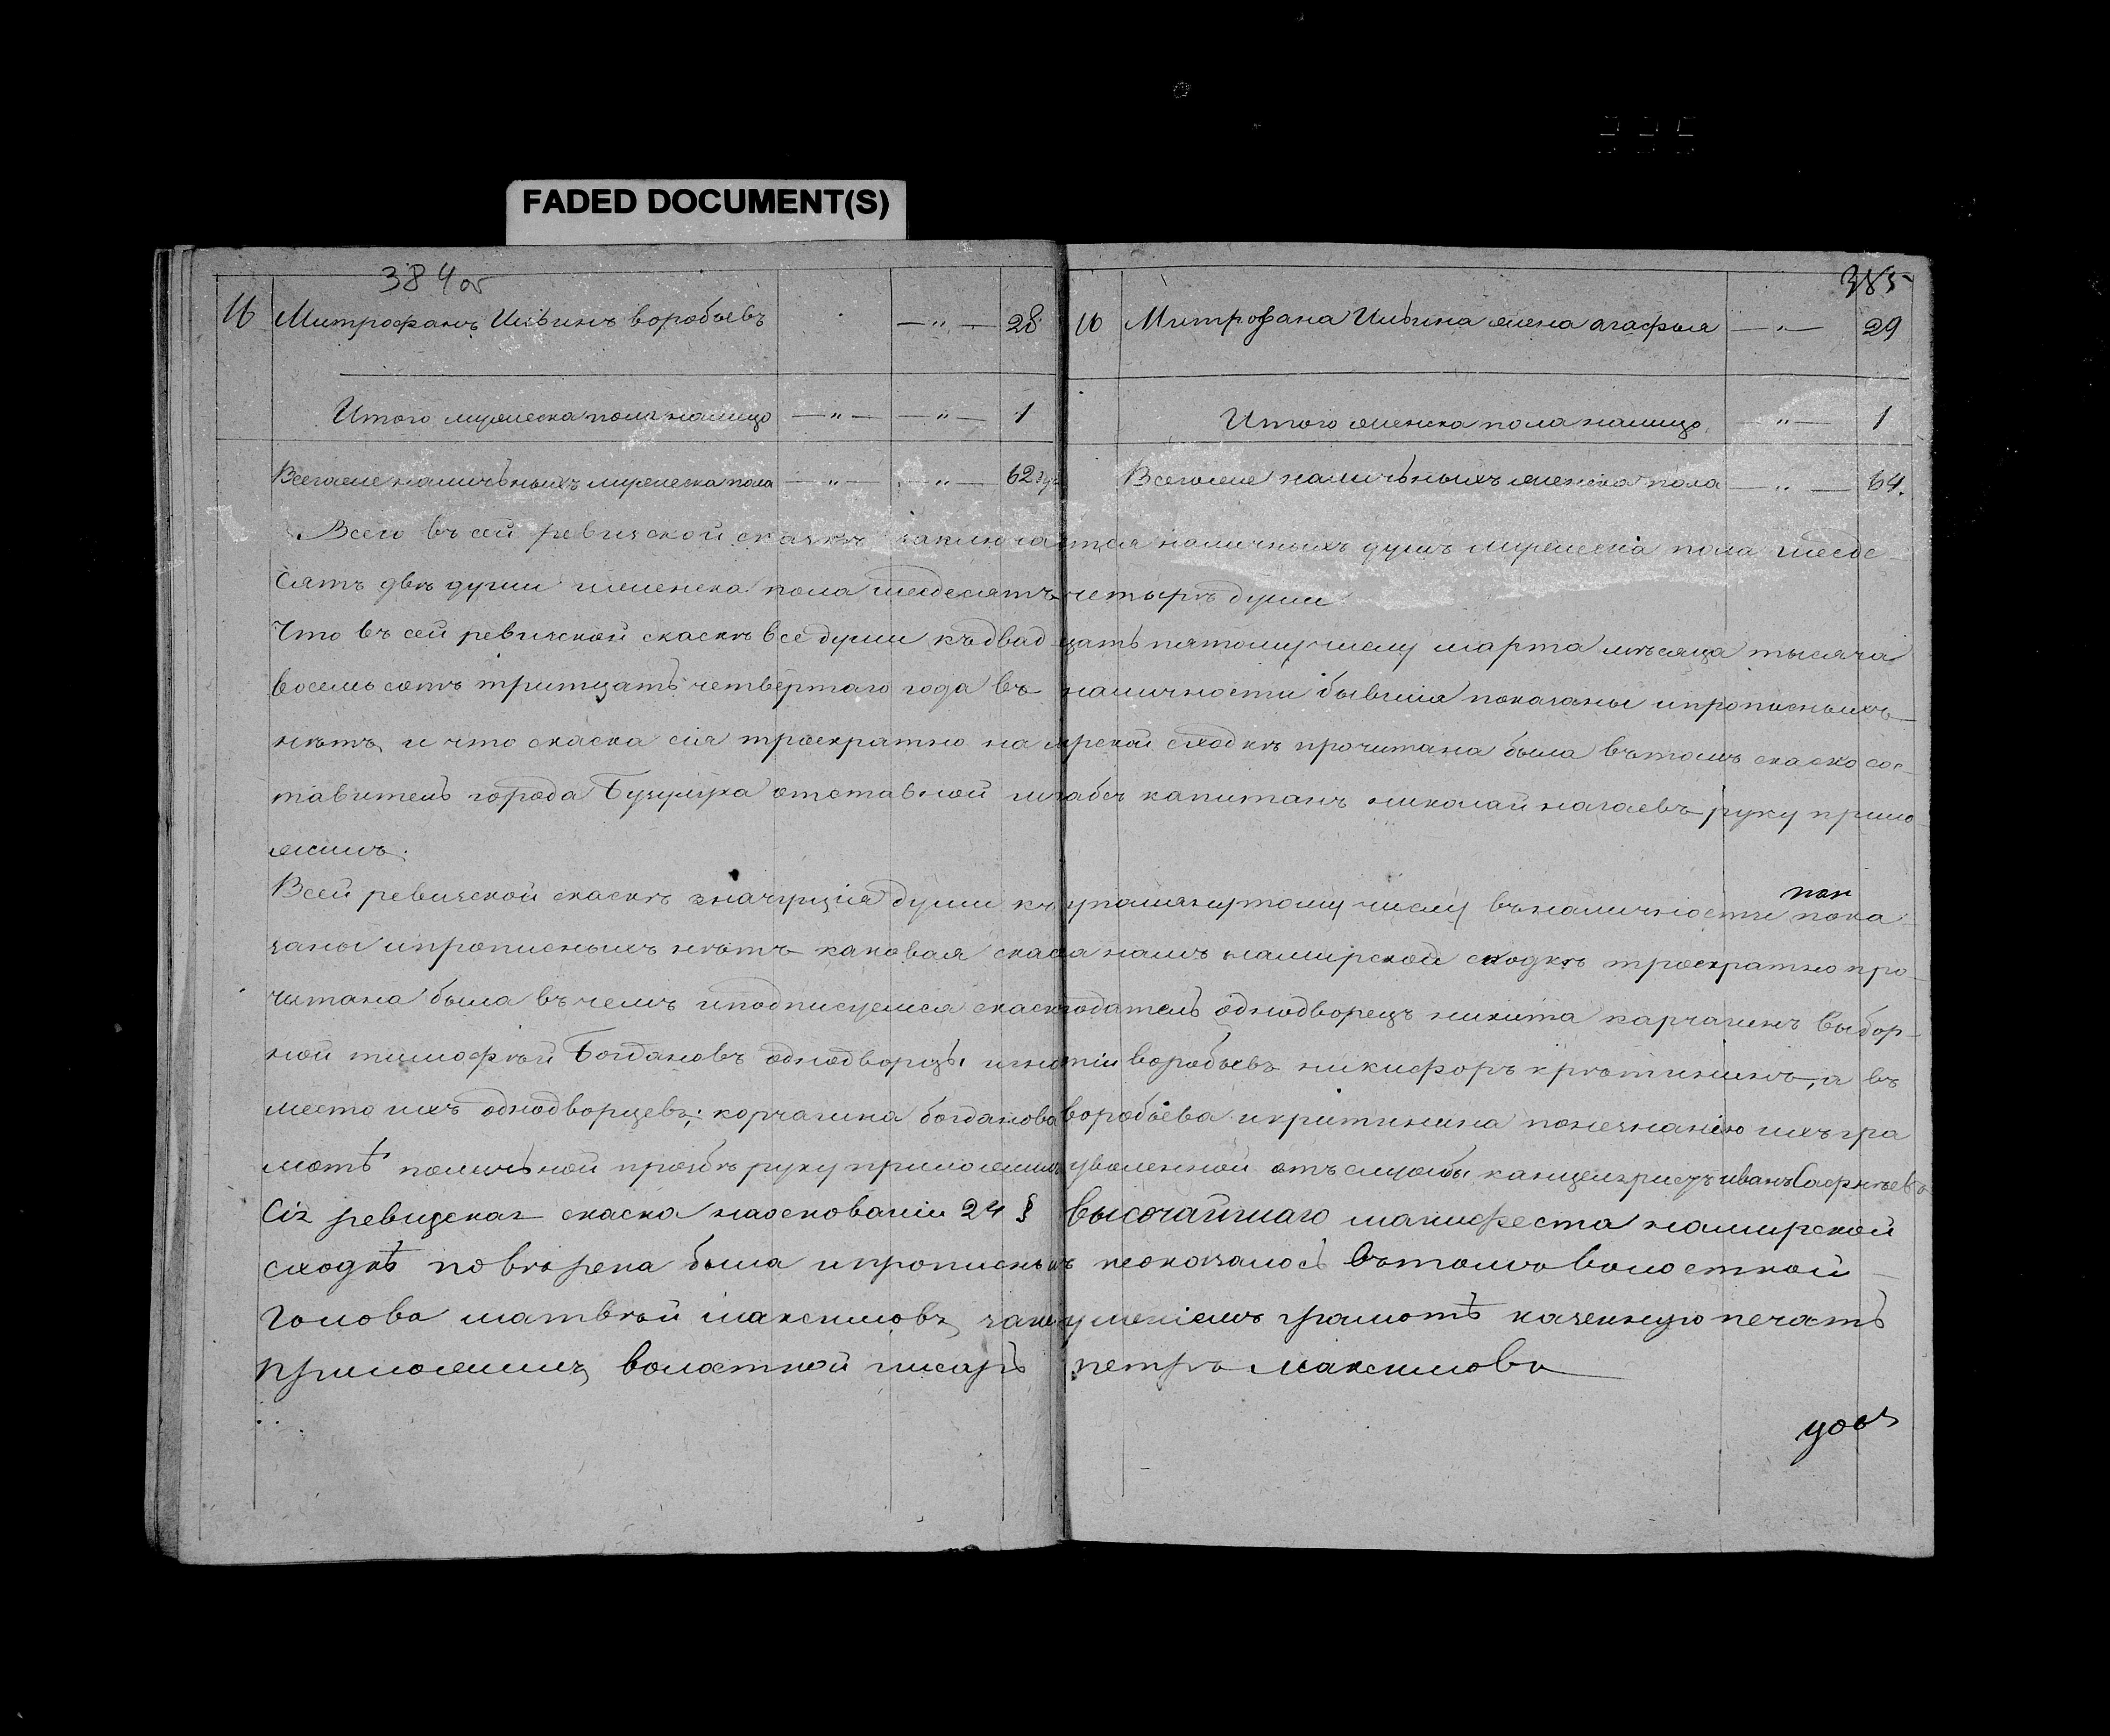 FADED DOCUMENT(S)
384 об
385
16 Митрофанъ Ильинъ воробьевъ — " — 28 16 Митрофана Ильина жена агафья — " — 29
Итого мужеска пола налицо — " — — " — 1 Итого женска пола налицо — " — 1
Всегоже наличьныхъ мужеска пола — " — — " — 62 Всегоже наличьныхъ женска пола — " — 64.
Всего въ сей ревиской скаскѣ заключается наличныхъ душъ мужеска пола шесде-
сятъ двѣ души иженска пола шесдесятъ четырѣ души
Что въ сей ревиской скаскѣ все души къдвадцать пятому числу марта мѣсяца тысяча
восемь сотъ тритцать четвертаго года въ наличности бывшия показаны ипрописныхъ
нѣтъ, и что скаска сия троекратно на мрской сходкѣ прочитана была вътомъ скаско сос-
тавитель города Бузулука отставной штабсъ капитанъ николай нагаевъ руку прило
жилъ.
Всей ревиской скаскѣ значущия души къ упомянутому числу въналичности пока
заны ипрописныхъ нѣтъ каковая скаска намъ намирской сходкѣ троекратно про-
читана была въ чемъ иподписуемся скаскодатель однодворецъ никита карчагинъ выбор-
ной тимофѣй Богдановъ однодворцы игнатии воробьевъ никифоръ крѣтининъ, а въ
место ихъ однодворцевъ; корчагина богданова воробьева икритинина понезнанию ихъ гра
мотѣ поличьной прозбѣ руку приложилъ уволенной отъ службы канцеляристъ иванъ Сафнѣевъ
Сія ревиская скаска наоснованіи 24 § высочайшаго манифеста намирской
сходкѣ повѣрена была ипрописныхъ неоказалось вътомъ волостной
Голова матвѣй максимовъ, занеумениемъ грамотѣ казенную печать
приложилъ, волостной писарь петръ максимовъ